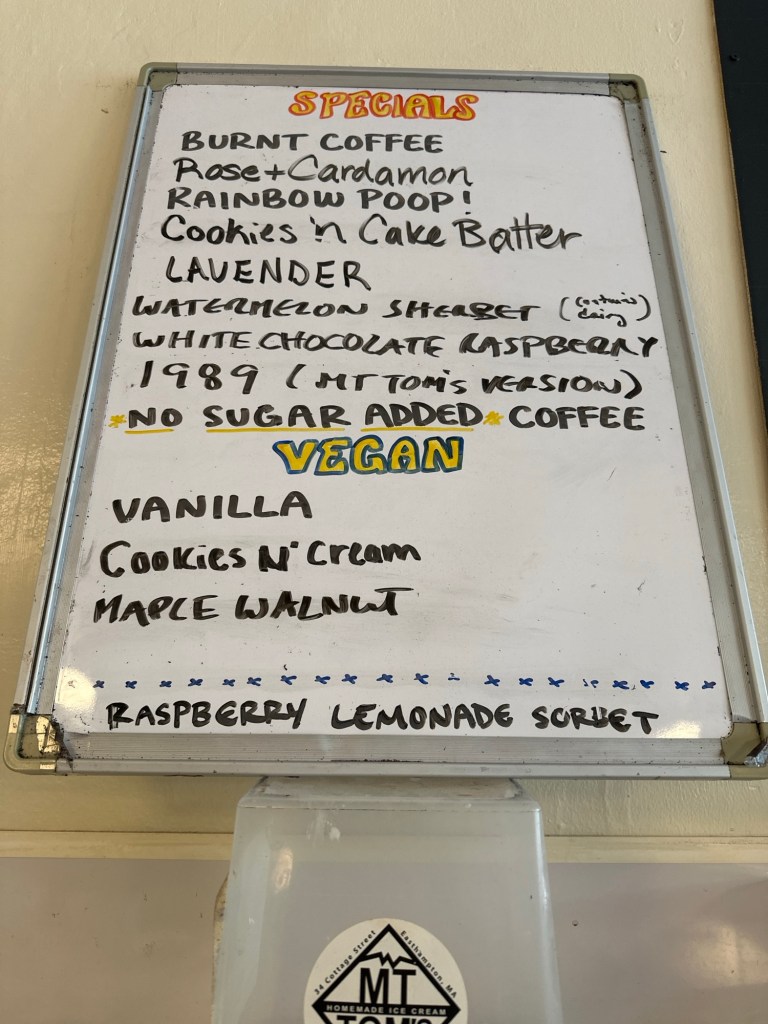 SPECIALS
BURNT COFFEE
Rose+Cardamon
RAINBOW POOP!
Cookies 'n Cake Batter
LAVENDER
WATERMELON SHERBET (contains dairy)
WHITE CHOCOLATE RASPBERRY
1989 (MT TOM'S VERSION)
*NO SUGAR ADDED* COFFEE
VEGAN
VANILLA
Cookies N' Cream
MAPLE WALNUT
RASPBERRY LEMONADE SORBET
34 Cottage Street Easthampton, MA
MT
HOMEMADE ICE CREAM
TOM'S